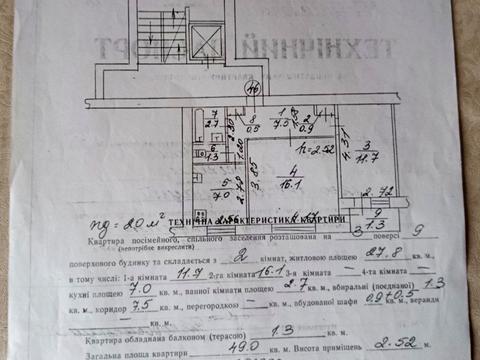 ТЕХНІЧНИЙ ПАСПОРТ
46
7
2.7
8
0.5
1
7.5
2
0.9
6
1.3
2.30
1.20
h=2.52
4.31
3
11.7
5
7.0
2.70
3.85
4
16.1
2.72
9
1.3
пд = 20 м²
ТЕХНІЧНА ХАРАКТЕРИСТИКА КВАРТИРИ
Квартира посімейного, спільного заселення розташована на 3 поверсі 9
(невотрібне викреслити)
поверхового будинку та складається з 2 кімнат, житловою площею 27,8 кв. м,
в тому числі: 1-а кімната 11.7 2-га кімната 16.1 3-я кімната — 4-та кімната —
кухні площею 7.0 кв. м., ванної кімнати площею 2.7 кв. м., вбиральні (поєднаної) 1.3
кв. м, коридор 7.5 кв. м., перегородкою — кв. м., вбудованої шафи 0.9+0.5 кв. м., веранди
— кв. м.
Квартира обладнана балконом (терасою) 1.3 кв. м.
Загальна площа квартири 49.0 кв. м. Висота приміщень 2.52 м.